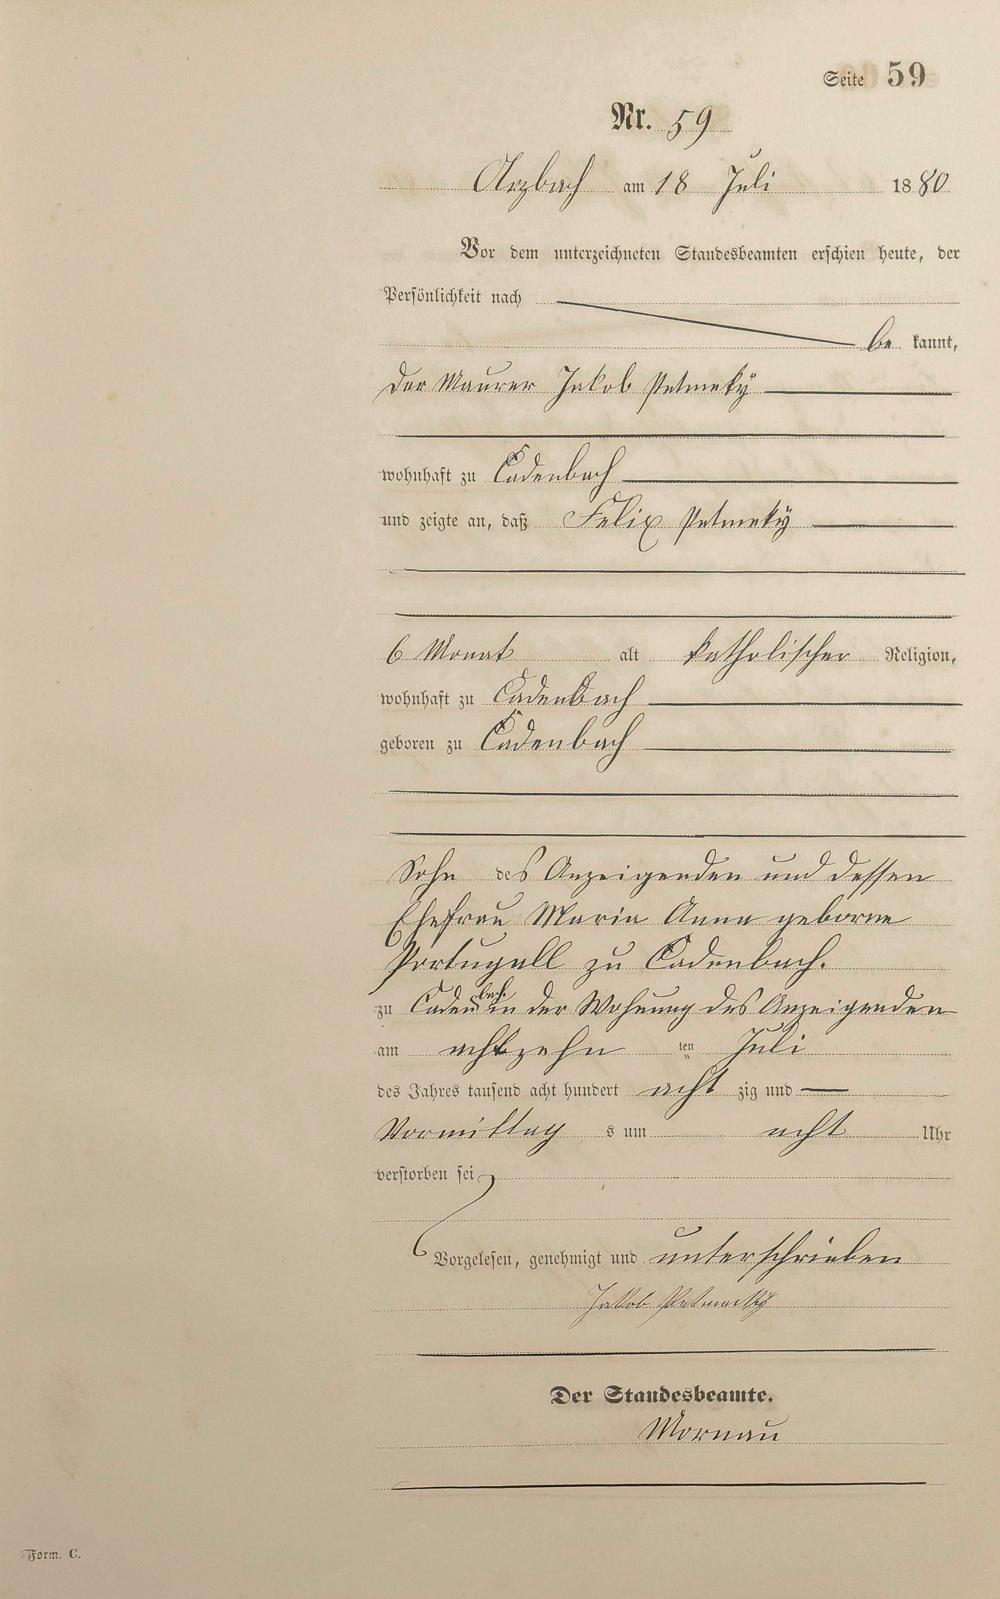 Seite 59
Nr. 59
Arzbach am 18 Juli 1880
Vor dem unterzeichneten Standesbeamten erschien heute, der
Persönlichkeit nach
be kannt,
der Maurer Jakob Petmeky
wohnhaft zu Cadenbach
und zeigte an, daß Felix Petmeky
6 Monat alt katholischer Religion,
wohnhaft zu Cadenbach
geboren zu Cadenbach
Sohn des Anzeigenden und dessen
Ehefrau Maria Anna geborne
Portugall zu Cadenbach.
zu Cadenbach in der Wohnung des Anzeigenden
am achtzehn ten Juli
des Jahres tausend acht hundert acht zig und
Vormittag s um acht Uhr
verstorben sei
Vorgelesen, genehmigt und unterschrieben
Jakob Petmecky
Der Standesbeamte.
Mornau
Form. C.